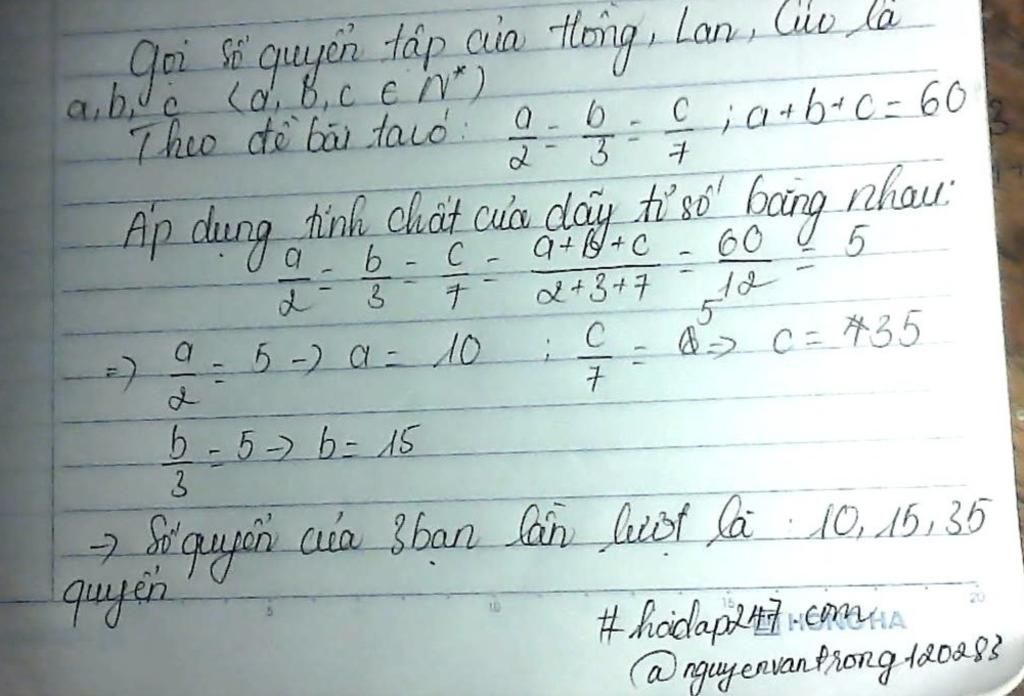 Gọi số quyển tập của Hồng, Lan, Cúc là
a, b, c (a, b, c ∈ N*)
Theo đề bài ta có: a/2 = b/3 = c/7 ; a+b+c = 60
Áp dụng tính chất của dãy tỉ số bằng nhau:
a/2 = b/3 = c/7 = a+b+c/2+3+7 = 60/12 = 5
=> a/2 = 5 -> a = 10 ; c/7 = 5 => c = 35
b/3 = 5 -> b = 15
-> Số quyển của 3 bạn lần lượt là : 10, 15, 35
quyển
5 10 15 20
#hoidap247.com
HONG HA
@nguyenvantrong120283